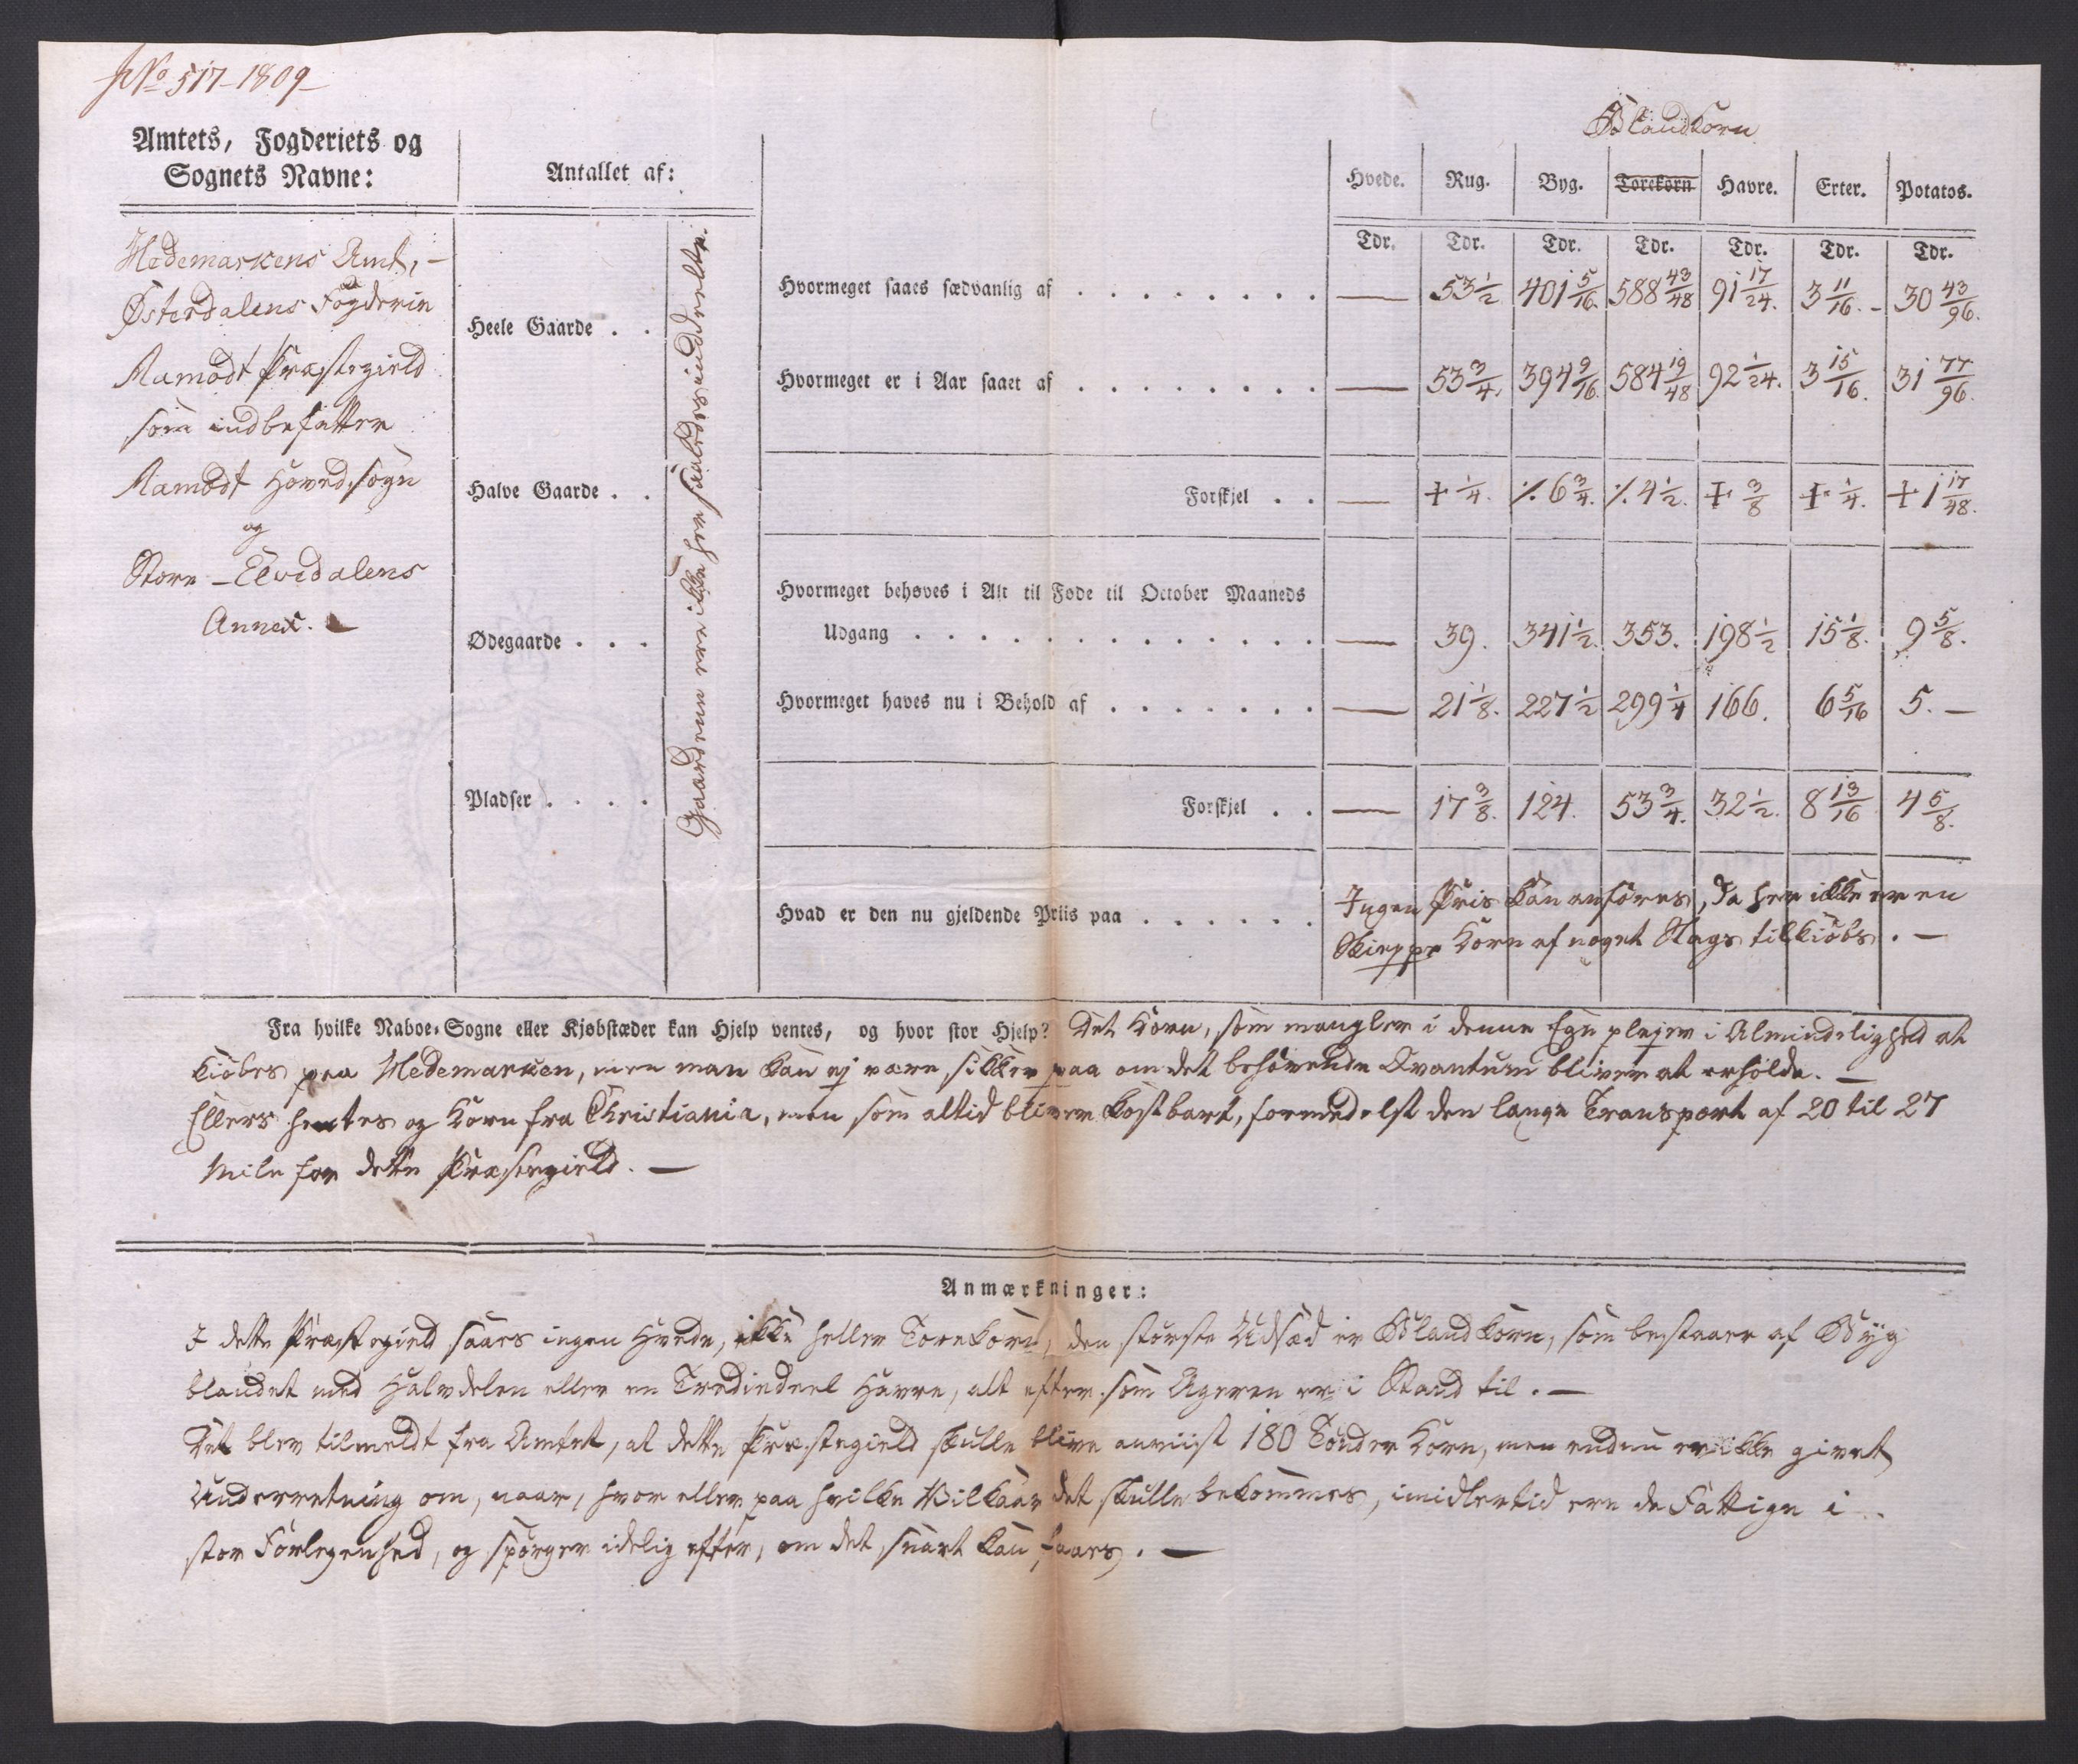 No 517-1809
Blandkorn
Amtets, Fogderiets og
Sognets Navne:
Antallet af:
Hvede. Rug. Byg. Torekorn Havre. Erter. Potatos.
Tdr. Tdr. Tdr. Tdr. Tdr. Tdr. Tdr.
Hedemarkens Amt, -
Østerdalens Fogderie
Aamodt Præstegield
som indbefatter
Aamodt Hoved,sogn
og
Store-Elvedalens
Annex. -
Heele Gaarde . .
Halve Gaarde . .
Ødegaarde . . .
Pladser . . . .
Gaardene ere ikke her saaledes inddeelte.
Hvormeget saaes sædvanlig af . . . . . . . . — 53 1/2 401 5/16. 588 43/48 91 17/24. 3 11/16. - 30 43/96.
Hvormeget er i Aar saaet af . . . . . . . . — 53 3/4. 394 9/16. 584 19/48 92 1/24. 3 15/16. 31 77/96.
Forskjel . . — + 1/4. ⁒ 6 3/4. ⁒ 4 1/2. + 3/8 + 1/4. + 1 17/48.
Hvormeget behøves i Alt til Føde til October Maaneds
Udgang . . . . . . . . . . . . . — 39. 341 1/2. 353. 198 1/2 15 1/8. 9 5/8.
Hvormeget haves nu i Behold af . . . . . . . — 21 1/8. 227 1/2 299 1/4 166. 6 5/16 5. —
Forskjel . . — 17 3/8. 124. 53 3/4. 32 1/2. 8 13/16 4 5/8.
Hvad er den nu gjeldende Priis paa . . . . . . Ingen Priis kan anføres, da her ikke er en
Skieppe Korn af noget Slags tilkiøbs. —
Fra hvilke Naboe-Sogne eller Kjøbstæder kan Hjelp ventes, og hvor stor Hjelp? Det Korn, som mangler i denne Egn plejer i Almindelighed at
kiøbes paa Hedemarken, men man kan ej være sikker paa om det behøvende Qvantum bliver at erholde. —
Ellers hentes og Korn fra Christiania, men som altid bliver kostbart, formedelst den lange Transport af 20 til 27
Mile for dette Præstegield. —
Anmærkninger:
I dette Præstegield saaes ingen Hvede, ikke heller Torekorn, den største Udsæd er Blandkorn, som bestaaer af Byg
blandet med Halvdelen eller en Trediedeel Havre, alt eftersom Ageren er i Stand til. —
Det blev tilmeldt fra Amtet, at dette Præstegield skulle blive anviist 180 Tønder Korn, men endnu er ikke givet
Underretning om, naar, hvor eller paa hvilke Vilkaar det skulle bekommes, imidlertid ere de Fattige i
stor Forlegenhed, og spørger idelig efter, om det snart kan faaes. —